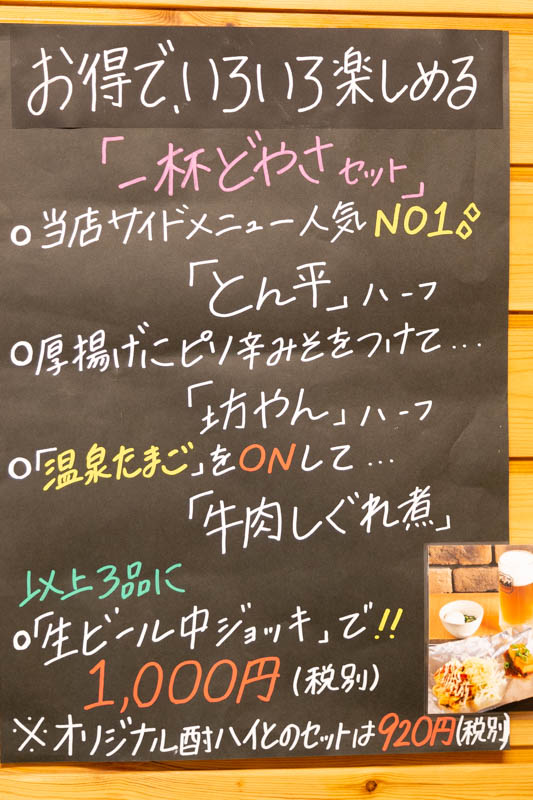 お得で、いろいろ楽しめる
「一杯どやさセット」
○当店サイドメニュー人気NO1
「とん平」ハーフ
○厚揚げにピリ辛みそをつけて…
「坊やん」ハーフ
○「温泉たまご」をONして…
「牛肉しぐれ煮」
以上3品に
○「生ビール中ジョッキ」で!!
1,000円(税別)
※オリジナル酎ハイとのセットは920円(税別)